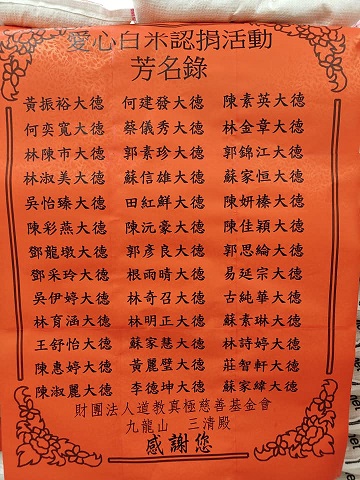 愛心白米認捐活動
芳名錄
黃振裕大德 何建發大德 陳素英大德
何奕寬大德 蔡儀秀大德 林金章大德
林陳市大德 郭素珍大德 郭錦江大德
林淑美大德 蘇信雄大德 蘇家恒大德
吳怡臻大德 田紅鮮大德 陳妍榛大德
陳彩燕大德 陳沅豪大德 陳佳穎大德
鄧龍墩大德 郭彥良大德 郭思綸大德
鄧采玲大德 根雨晴大德 易延宗大德
吳伊婷大德 林奇召大德 古純華大德
林育涵大德 林明正大德 蘇素琳大德
王舒怡大德 蘇家慧大德 林詩婷大德
陳惠婷大德 黃麗璧大德 莊智軒大德
陳淑麗大德 李德坤大德 蘇家緯大德
財團法人道教真極慈善基金會
九龍山 三清殿
感謝您